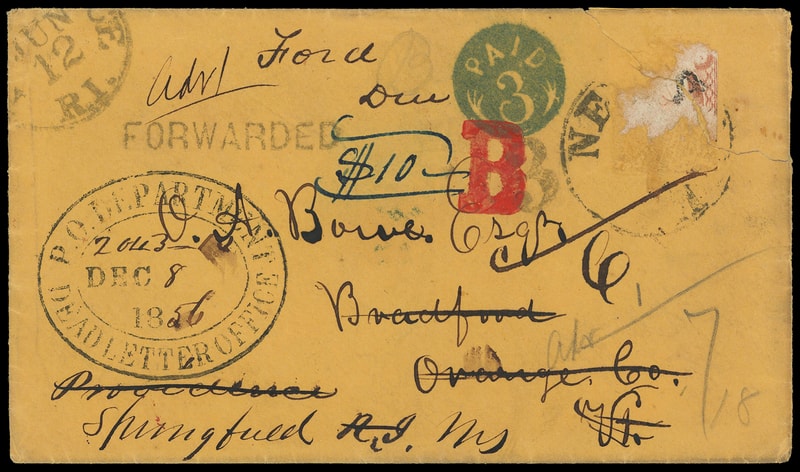 JUN
12
R.I.
Ford
adv1
Due
PAID
3
FORWARDED
$10
B
B
NE
P.O. DEPARTMENT
2043
DEC 8
1856
DEAD LETTER OFFICE
Bowe. Esqr
Bradford
Orange. Co.
Vt.
Providence
Springfield R.I. Ms
7/18